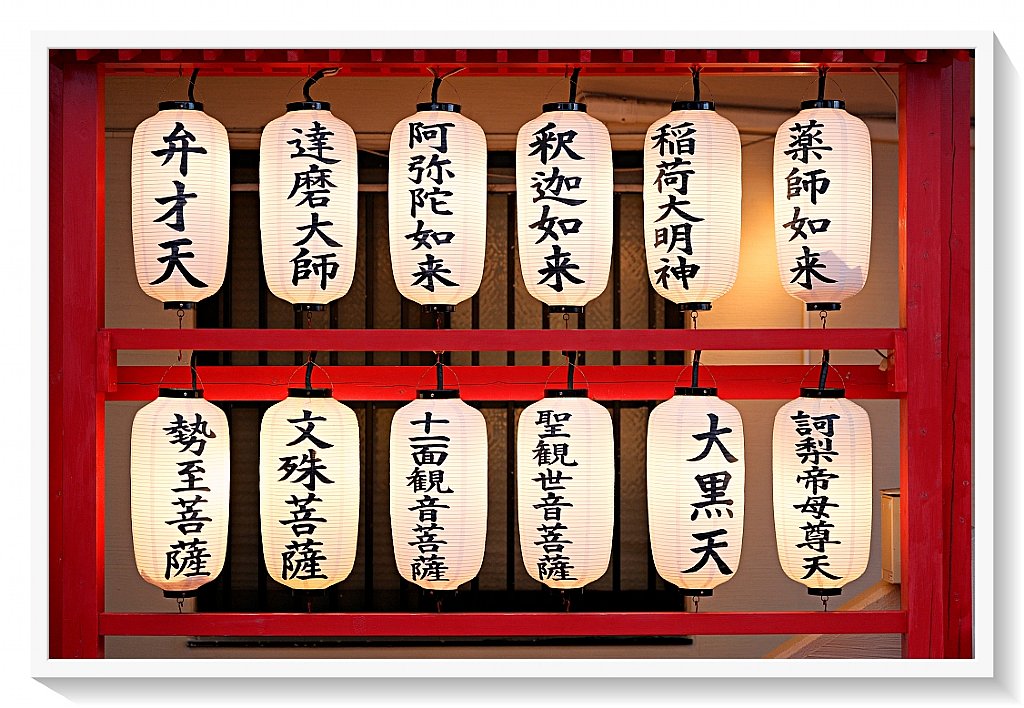 弁才天
達磨大師
阿弥陀如来
釈迦如来
稲荷大明神
薬師如来
勢至菩薩
文殊菩薩
十一面観音菩薩
聖観世音菩薩
大黒天
訶梨帝母尊天